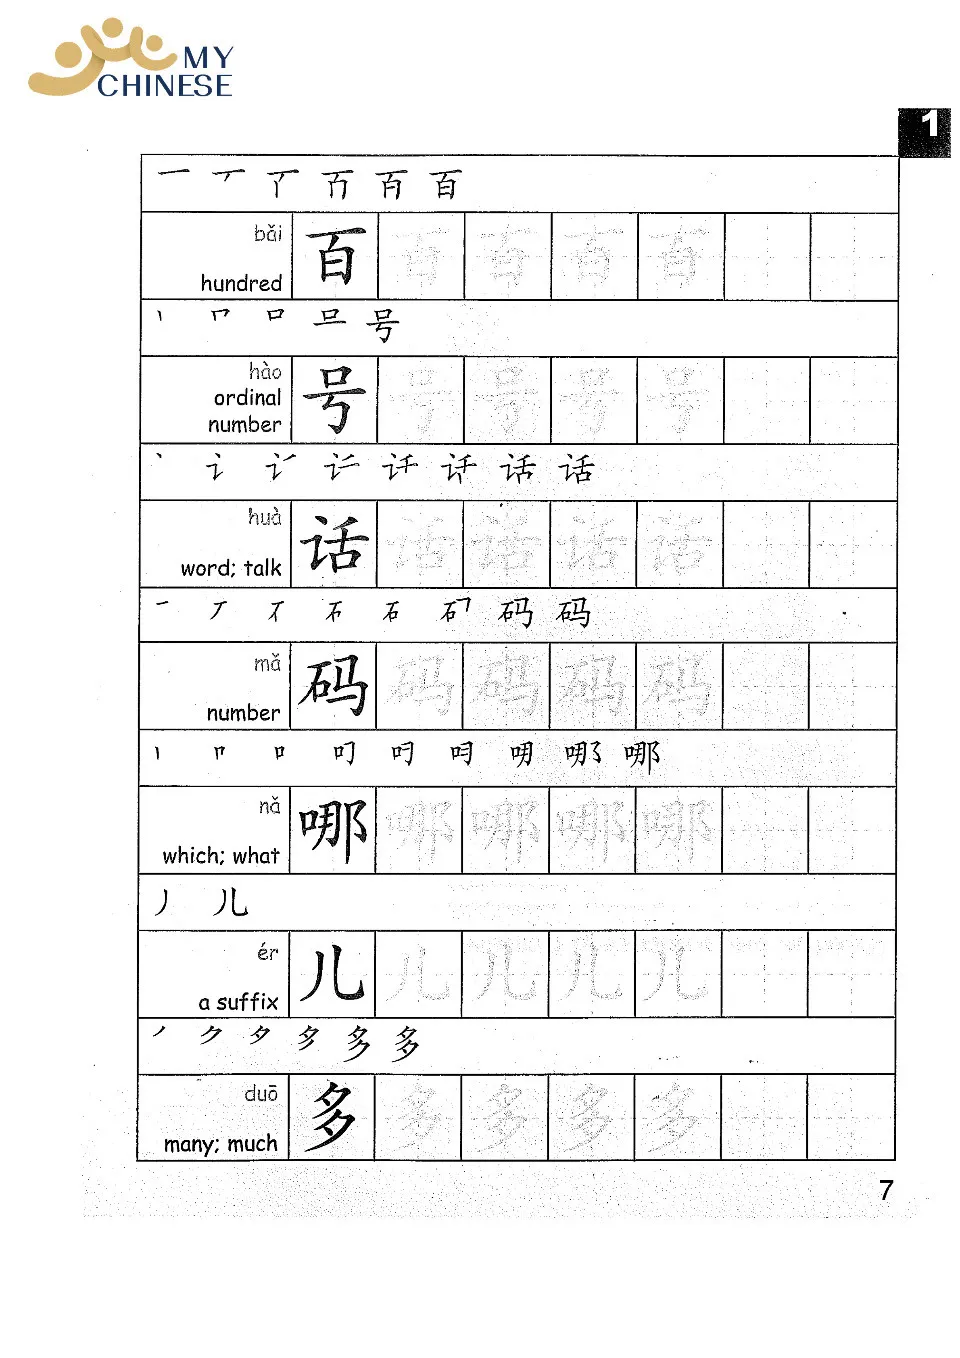 MY
CHINESE
1
一 丆 丆 百 百 百
bǎi
hundred
百 百 百 百 百
口 口 号
hào
ordinal
number
号 号 号 号 号
丶 讠 话 话
huà
word; talk
话 话 话 话 话
一 丆 石 石 码 码
mǎ
number
码 码 码 码 码
口 叨 哪 哪
nǎ
which; what
哪 哪 哪 哪 哪
丿 儿
ér
a suffix
儿 儿 儿 儿 儿
丿 ク 夕 多 多 多
duō
many; much
多 多 多 多 多
7